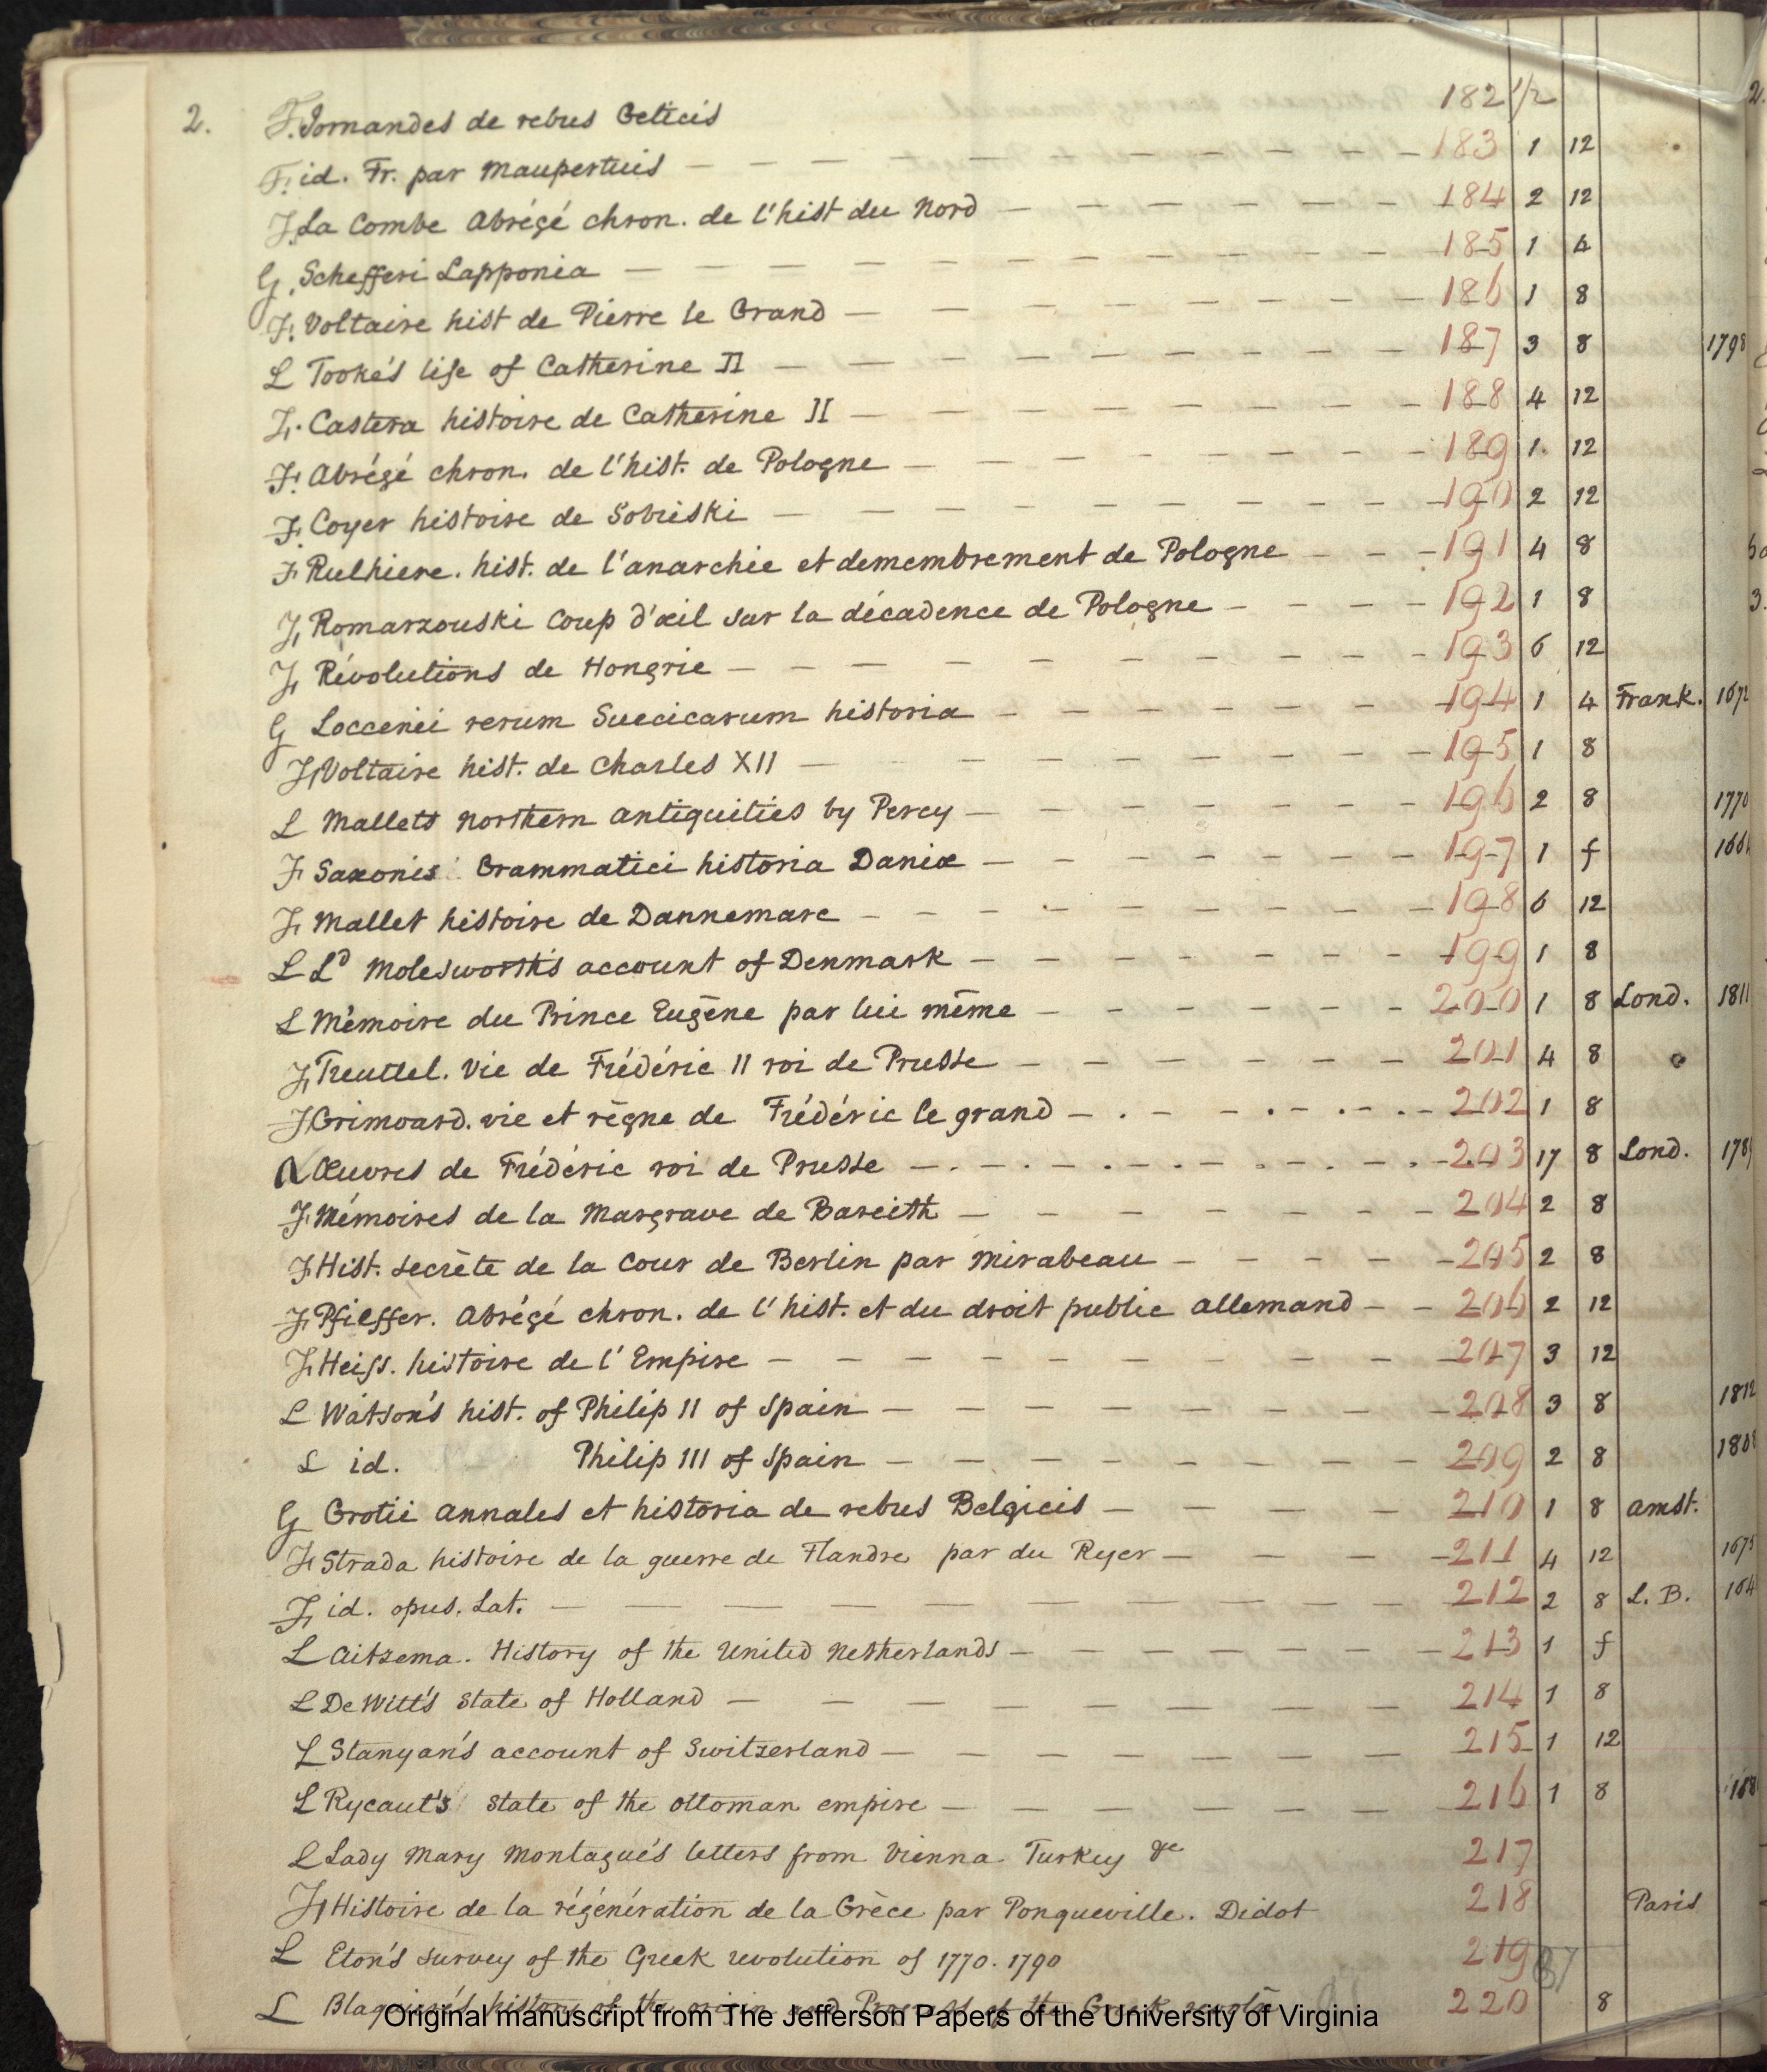 2. F. Jornandes de rebus Geticis 182 1/2
F. id. Fr. par Maupertuis 183 1 12
F. La Combe Abrégé chron. de l'hist du Nord 184 2 12
G. Schefferi Lapponia 185 1 4
F. Voltaire hist de Pierre le Grand 186 1 8
L Tooke's life of Catherine II 187 3 8 1798
F. Castera histoire de Catherine II 188 4 12
F. Abrégé chron. de l'hist. de Pologne 189 1. 12
F. Coyer histoire de Sobieski 190 2 12
F Rulhiere. hist. de l'anarchie et demembrement de Pologne 191 4 8
F. Komarzouski Coup d'œil sur la décadence de Pologne 192 1 8
F. Révolutions de Hongrie 193 6 12
G Loccenii rerum Suecicarum historia 194 1 4 Frank. 1672
F. Voltaire hist. de Charles XII 195 1 8
L Mallets Northern antiquities by Percy 196 2 8 1770
F Saxonis Grammatici historia Daniæ 197 1 f
F. Mallet histoire de Dannemarc 198 6 12
L Ld Molesworth's account of Denmark 199 1 8
L Mémoire du Prince Eugène par lui même 200 1 8 Lond. 1811
F. Treuttel. Vie de Frédéric II roi de Prusse 201 4 8
F Grimoard. vie et règne de Frédéric le grand 202 1 8
Œuvres de Frédéric roi de Prusse 203 17 8 Lond.
F. Mémoires de la Margrave de Bareith 204 2 8
F Hist. secrète de la Cour de Berlin par Mirabeau 205 2 8
F. Pfieffer. Abrégé chron. de l'hist. et du droit public allemand 206 2 12
F. Heiss. histoire de l'Empire 207 3 12
L Watson's hist. of Philip II of Spain 208 3 8 1812
L id. Philip III of Spain 209 2 8 1808
G Grotii Annales et historia de rebus Belgicis 210 1 8 Amst.
F Strada histoire de la guerre de Flandre par du Ryer 211 4 12 1675
F. id. opus. Lat. 212 2 8 L. B. 164
L Aitzema. History of the United Netherlands 213 1 f
L De Witt's State of Holland 214 1 8
L Stanyan's account of Switzerland 215 1 12
L Rycaut's State of the Ottoman empire 216 1 8 168
L Lady Mary Montague's letters from Vienna Turkey &c 217
F. Histoire de la régénération de la Grèce par Ponqueville. Didot 218 Paris
L Eton's survey of the Greek revolution of 1770. 1790 219
L Blaquiere's history of the origin and Progress of the Greek revoltn 220 8
Original manuscript from The Jefferson Papers of the University of Virginia